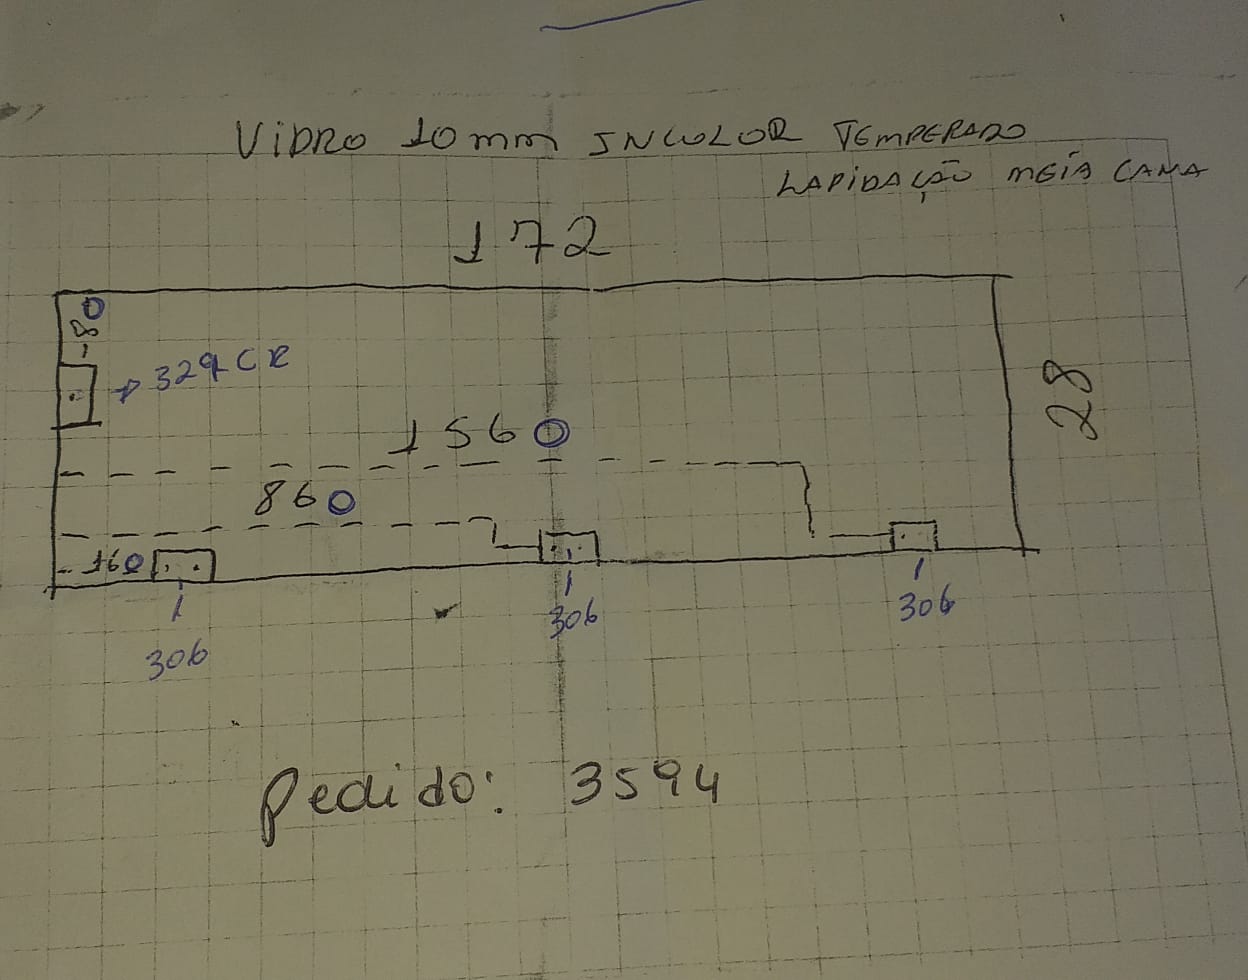 ViDRO 10mm INCOLOR TEMPERADO
LAPIDAÇÃO MEiA CANA
172
80
329CR
28
1560
860
160
306
306
306
Pedido: 3594